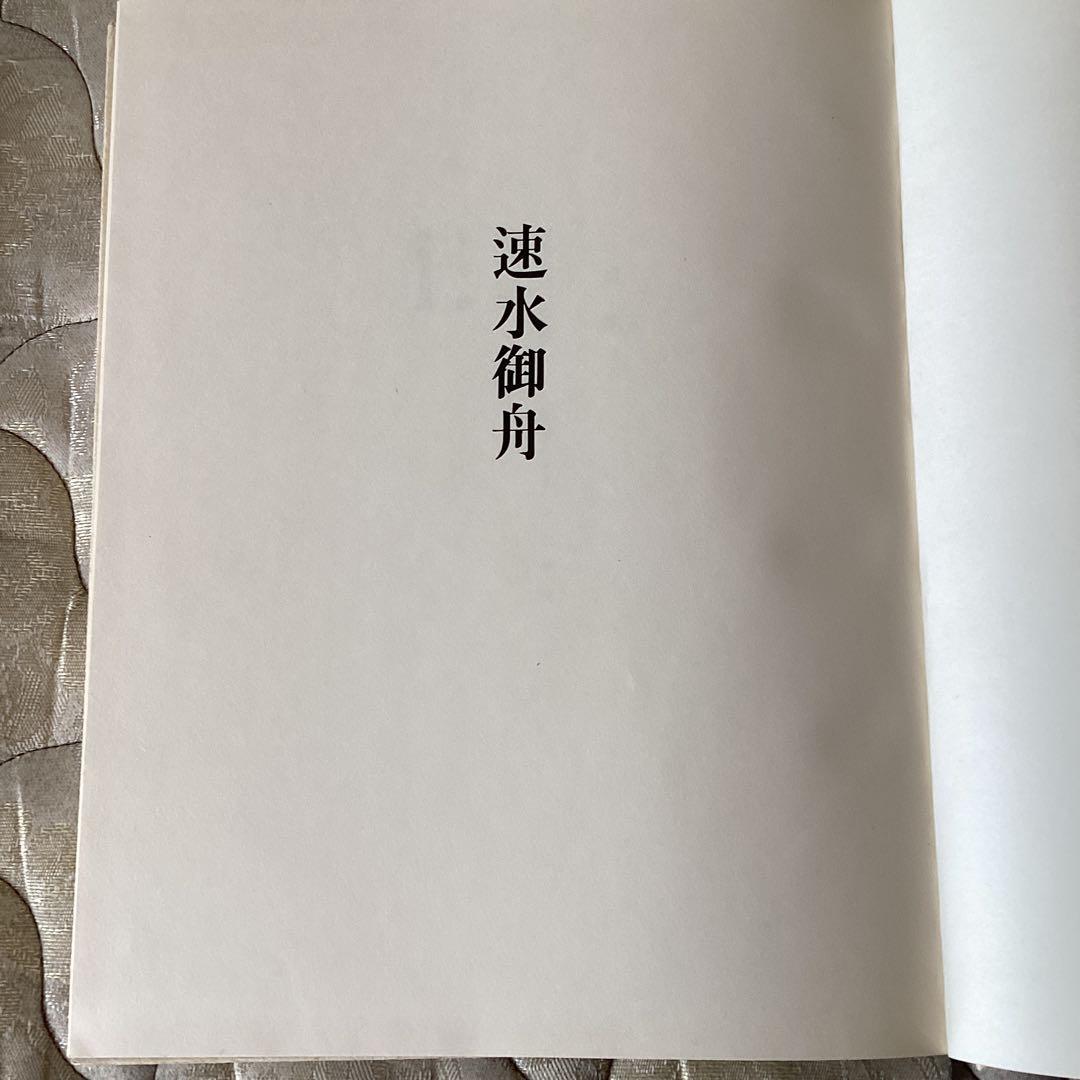 速水御舟